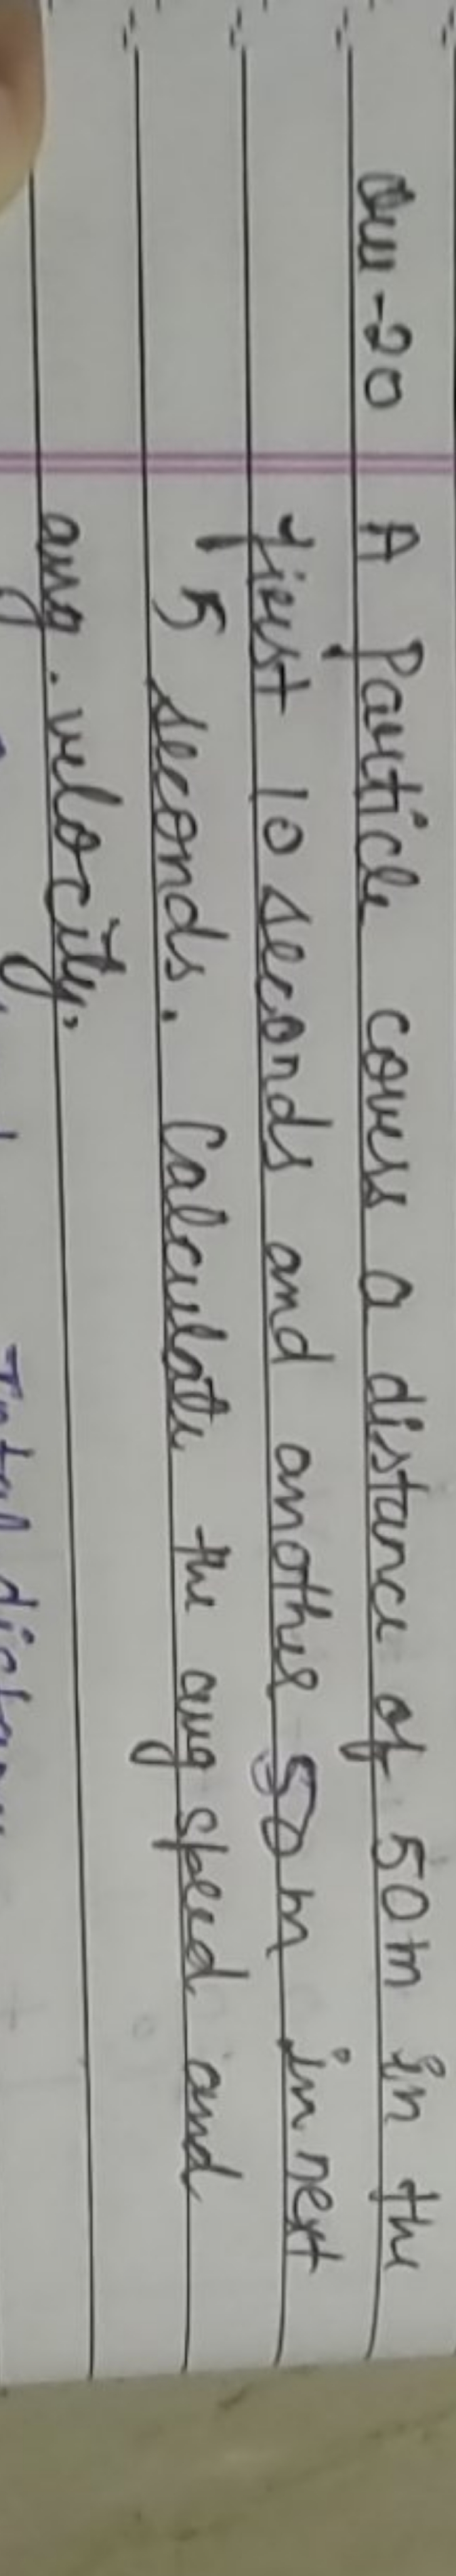 Que-20 A Particle covers a distance of 50m in the
first 10 seconds and another 50m in next
15 seconds. Calculate the avg speed and
avg. velocity.
Total distance